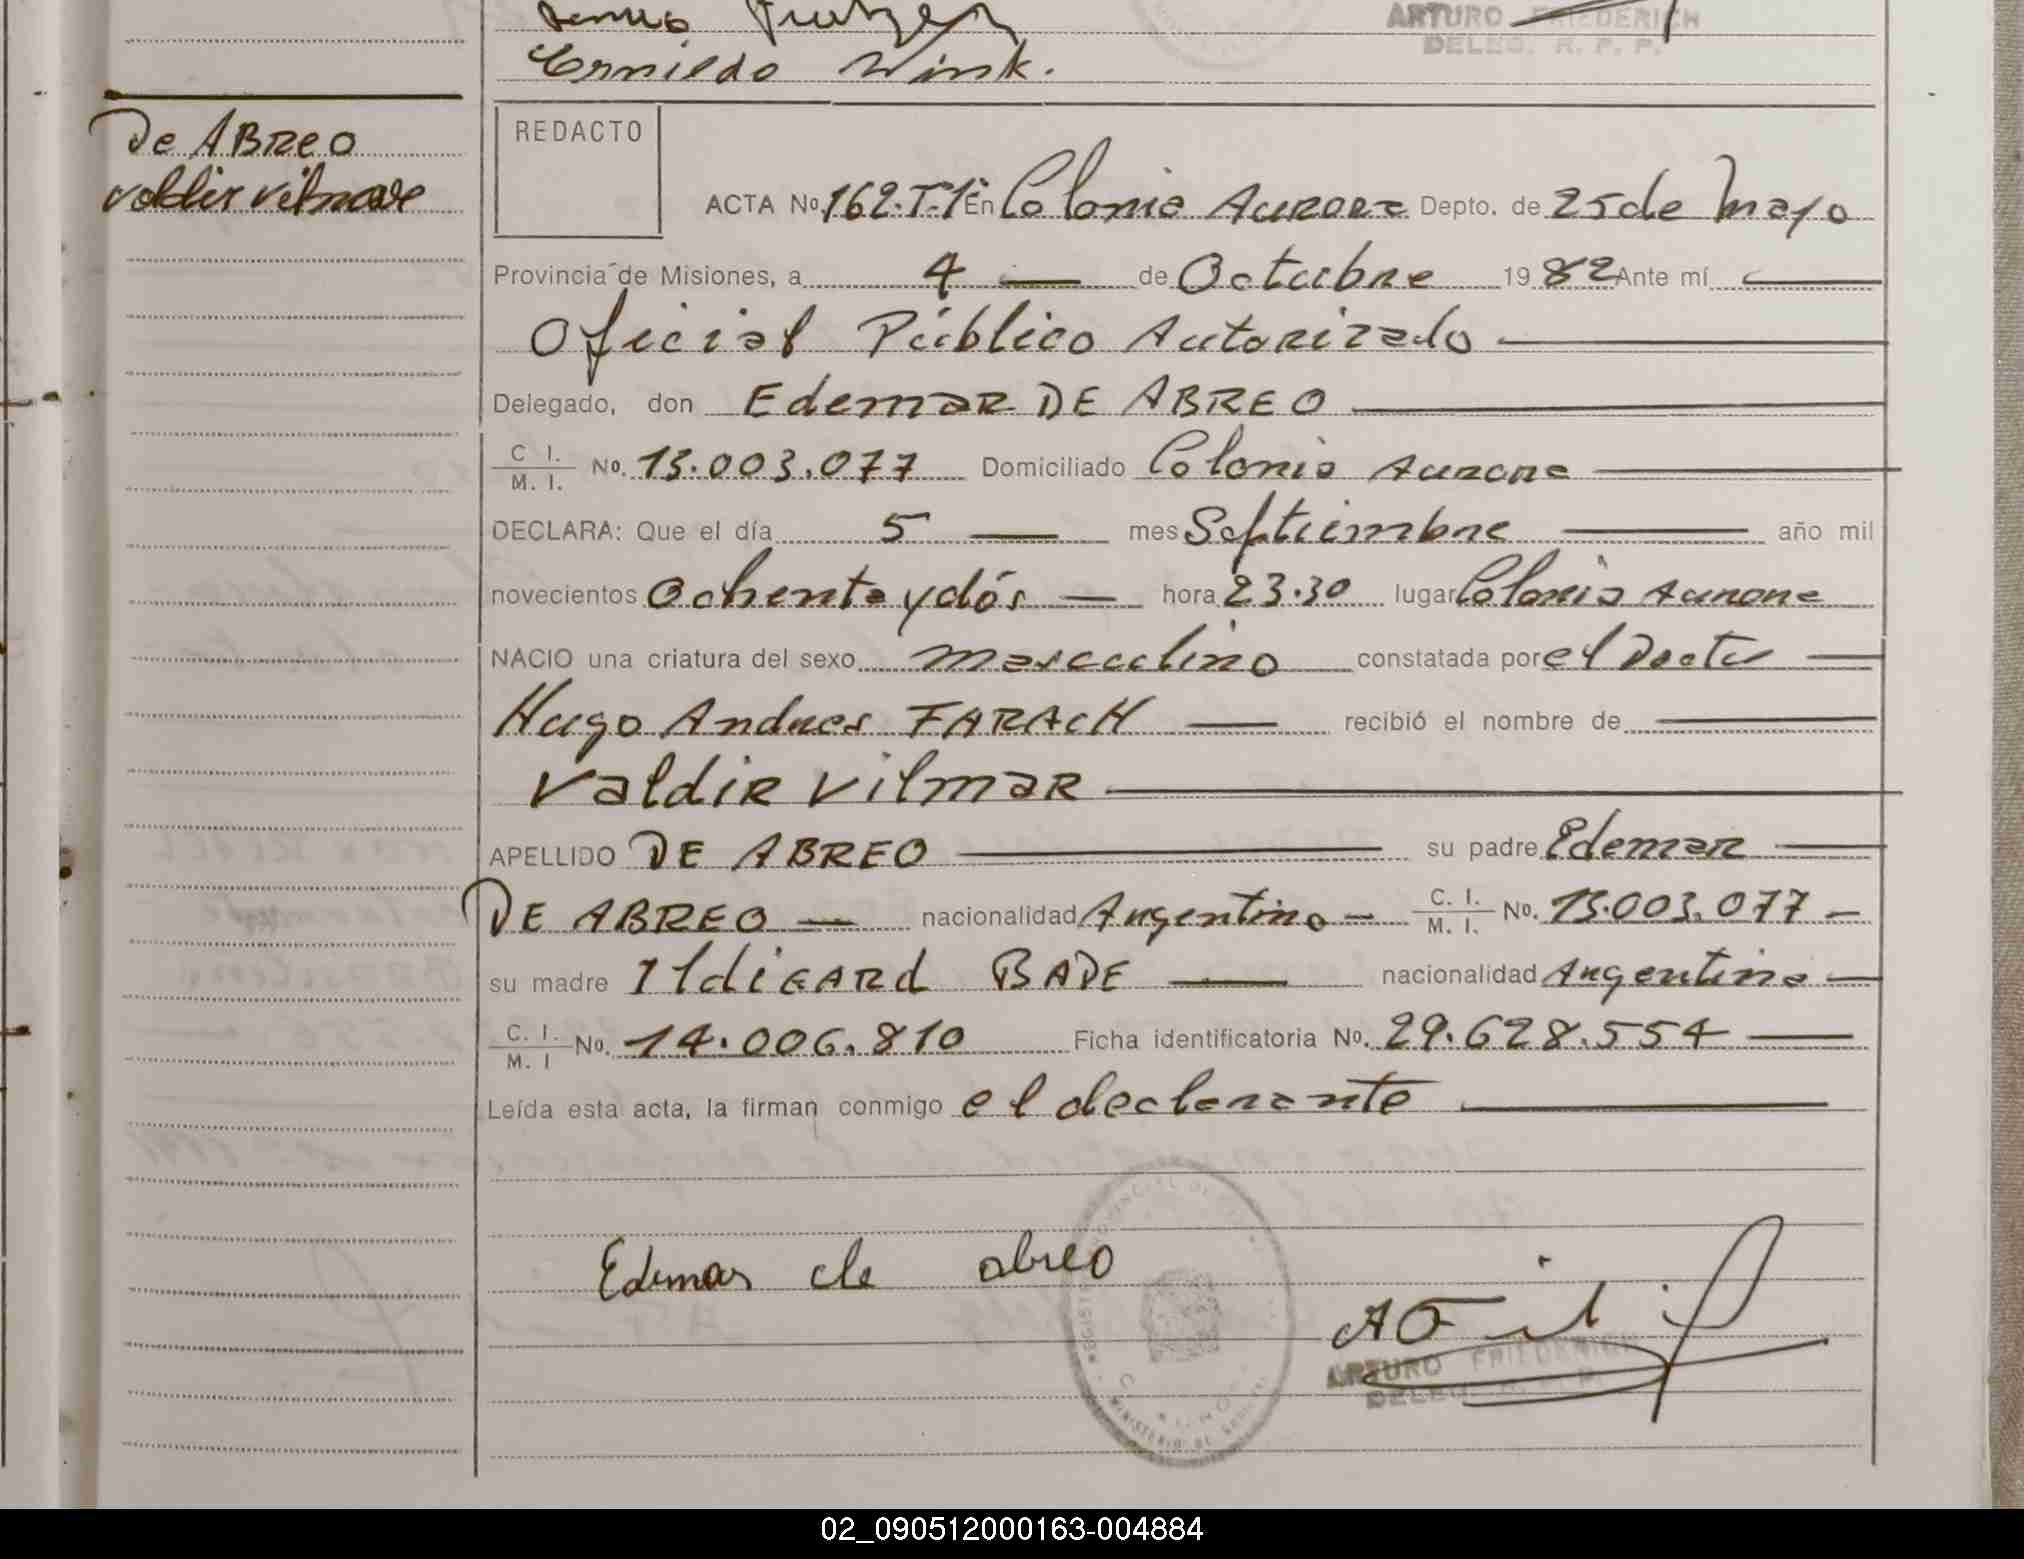 ARTURO FRIEDERICH
DELEG. R. P. P.
Wink.
De ABReO
Valdir Vilmar
REDACTO
ACTA No. 162.T.1º En Colonia Aurora Depto. de 25 de Mayo
Provincia de Misiones, a 4 de Octubre 1982 Ante mí
Oficial Público Autorizado
Delegado, don Edemar DE ABREO
C. I. / M. I. No. 13.003.077 Domiciliado Colonia Aurora
DECLARA: Que el día 5 mes Septiembre año mil
novecientos Ochenta y dós hora 23.30 lugar Colonia Aurora
NACIO una criatura del sexo masculino constatada por el Doctor
Hugo Andres FARACH recibió el nombre de
Valdir Vilmar
APELLIDO DE ABREO su padre Edemar
DE ABREO nacionalidad Argentino C. I. / M. I. No. 13.003.077
su madre Ildigard BADE nacionalidad Argentina
C. I. / M. I No. 14.006.810 Ficha identificatoria No. 29.628.554
Leída esta acta, la firman conmigo el declarante
Edemar de abreo
ARTURO FRIEDERICH
DELEG. R. P. P.
02_090512000163-004884